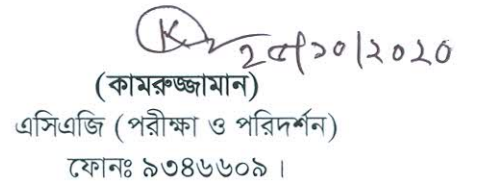 ২৫/১০/২০২০
(কামরুজ্জামান)
এসিএজি (পরীক্ষা ও পরিদর্শন)
ফোনঃ ৯৩৪৬৬০৯ ।